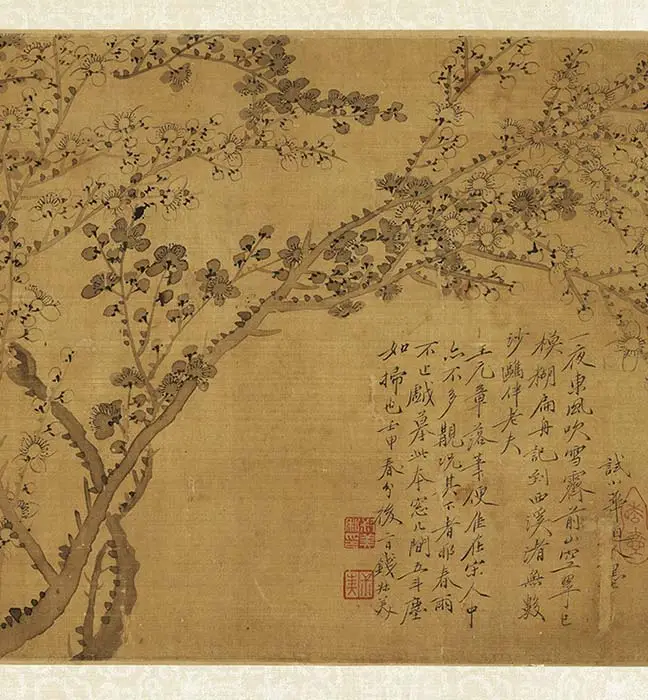 試
夜東風吹雪霽前山空翠已
模糊扁舟記到西溪看無數
沙鷗伴老夫
王元章落筆便佳在宋人中
亦不多覯況其下者耶春雨
不止戲摹此本窗几間五斗塵
如掃也壬申春分後二日錢叔美